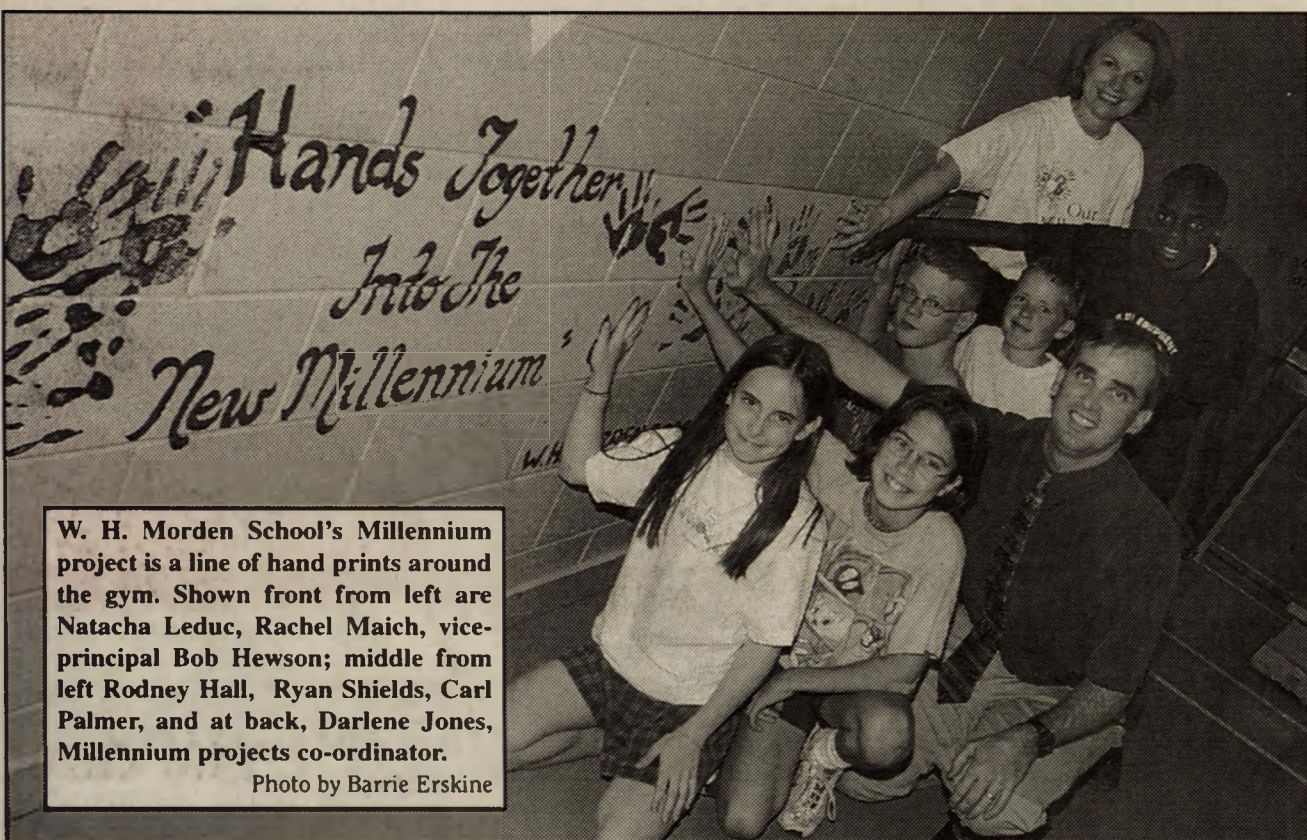 "Hands Together
Into The
New Millennium"
W.H.
Our
W. H. Morden School's Millennium
project is a line of hand prints around
the gym. Shown front from left are
Natacha Leduc, Rachel Maich, vice-
principal Bob Hewson; middle from
left Rodney Hall, Ryan Shields, Carl
Palmer, and at back, Darlene Jones,
Millennium projects co-ordinator.
Photo by Barrie Erskine